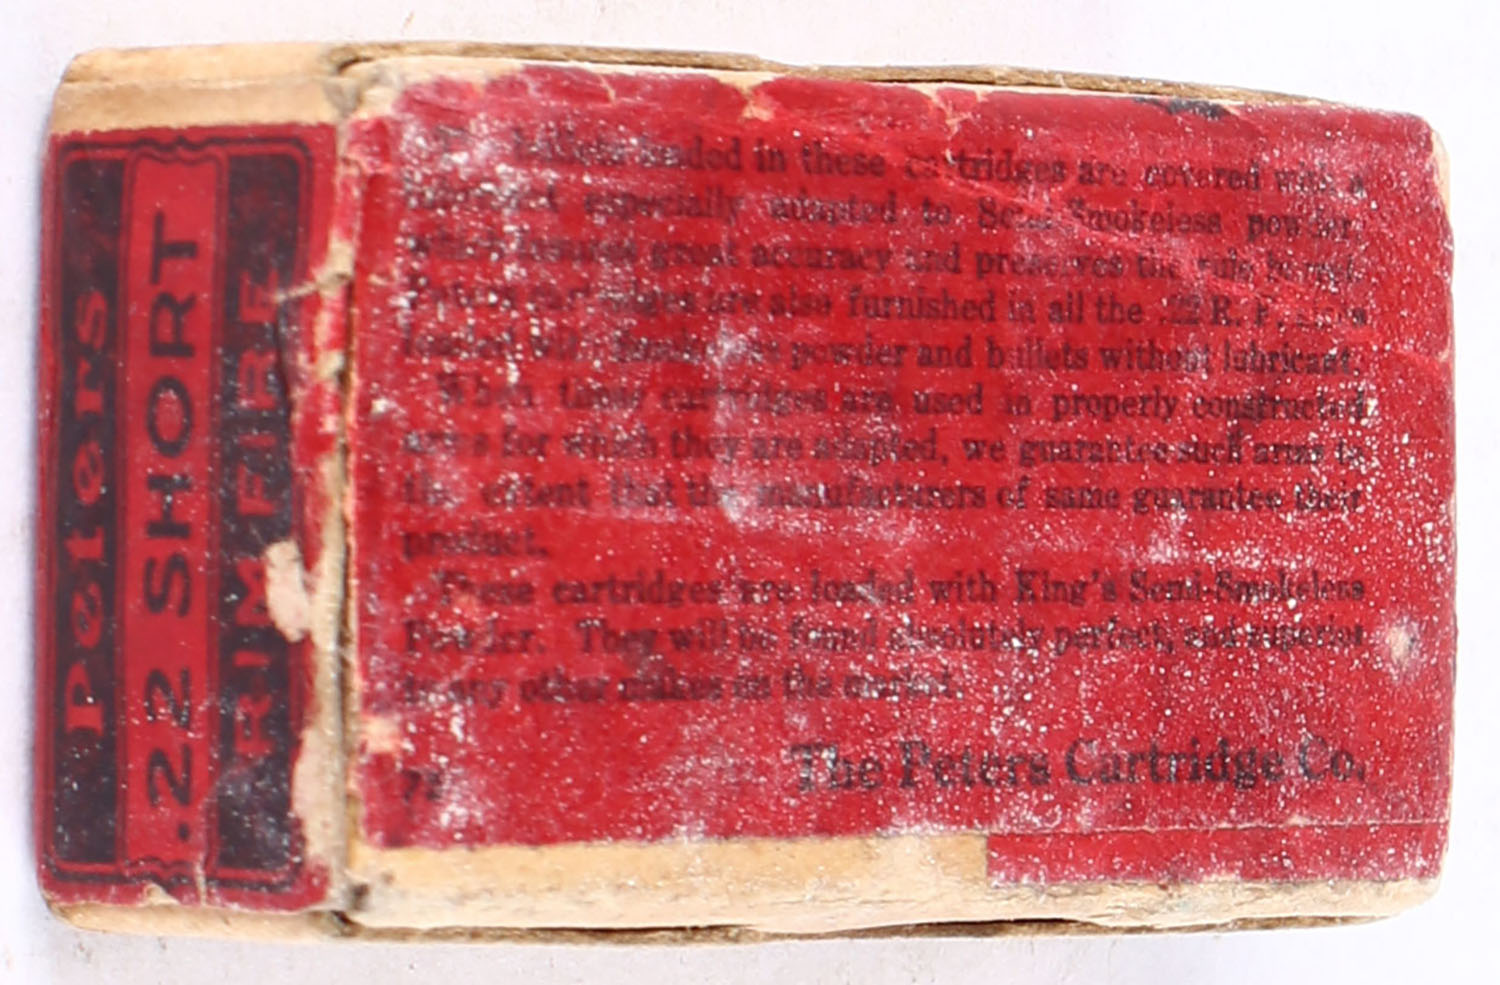 Peters
.22 SHORT
RIM FIRE
The bullets loaded in these cartridges are covered with a
lubricant especially adapted to Semi-Smokeless powder,
which insures great accuracy and preserves the rifle
Peters cartridges are also furnished in all the .22 R. F.
loaded with Smokeless powder and bullets without lubricant.
When these cartridges are used in properly constructed
arms for which they are adapted, we guarantee such arms to
the extent that the manufacturers of same guarantee their
product.
These cartridges are loaded with King's Semi-Smokeless
Powder. They will be found absolutely perfect, and superior
to any other makes on the market.
The Peters Cartridge Co.